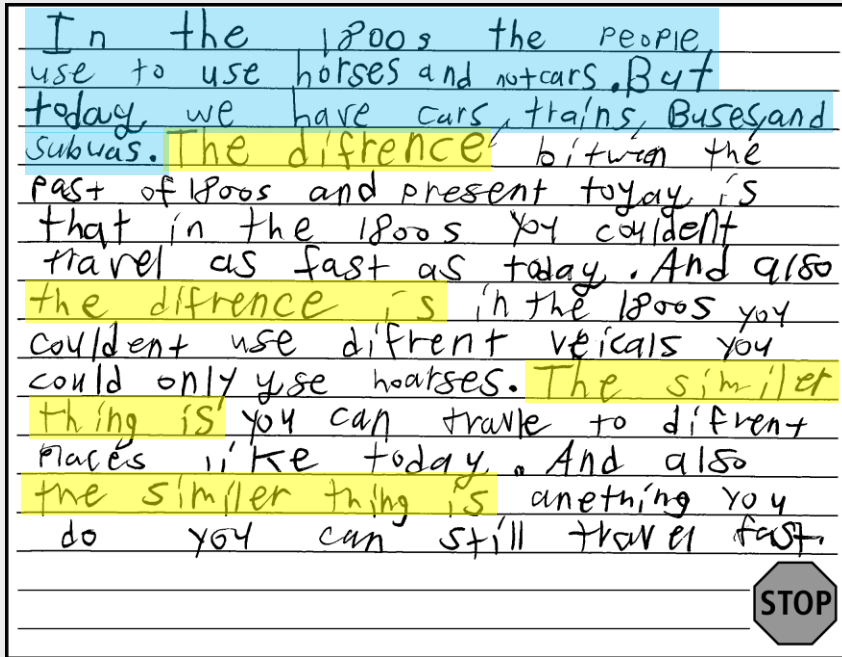 In the 1800s the people
use to use horses and not cars. But
today we have cars, trains, Buses, and
subwas. The difrence bitwin the
past of 1800s and present toyay is
that in the 1800s you couldent
travel as fast as today. And also
the difrence is in the 1800s you
couldent use difrent veicals you
could only use hoarses. The similer
thing is you can travle to difrent
places like today. And also
the similer thing is anething you
do you can still travel fast.
STOP